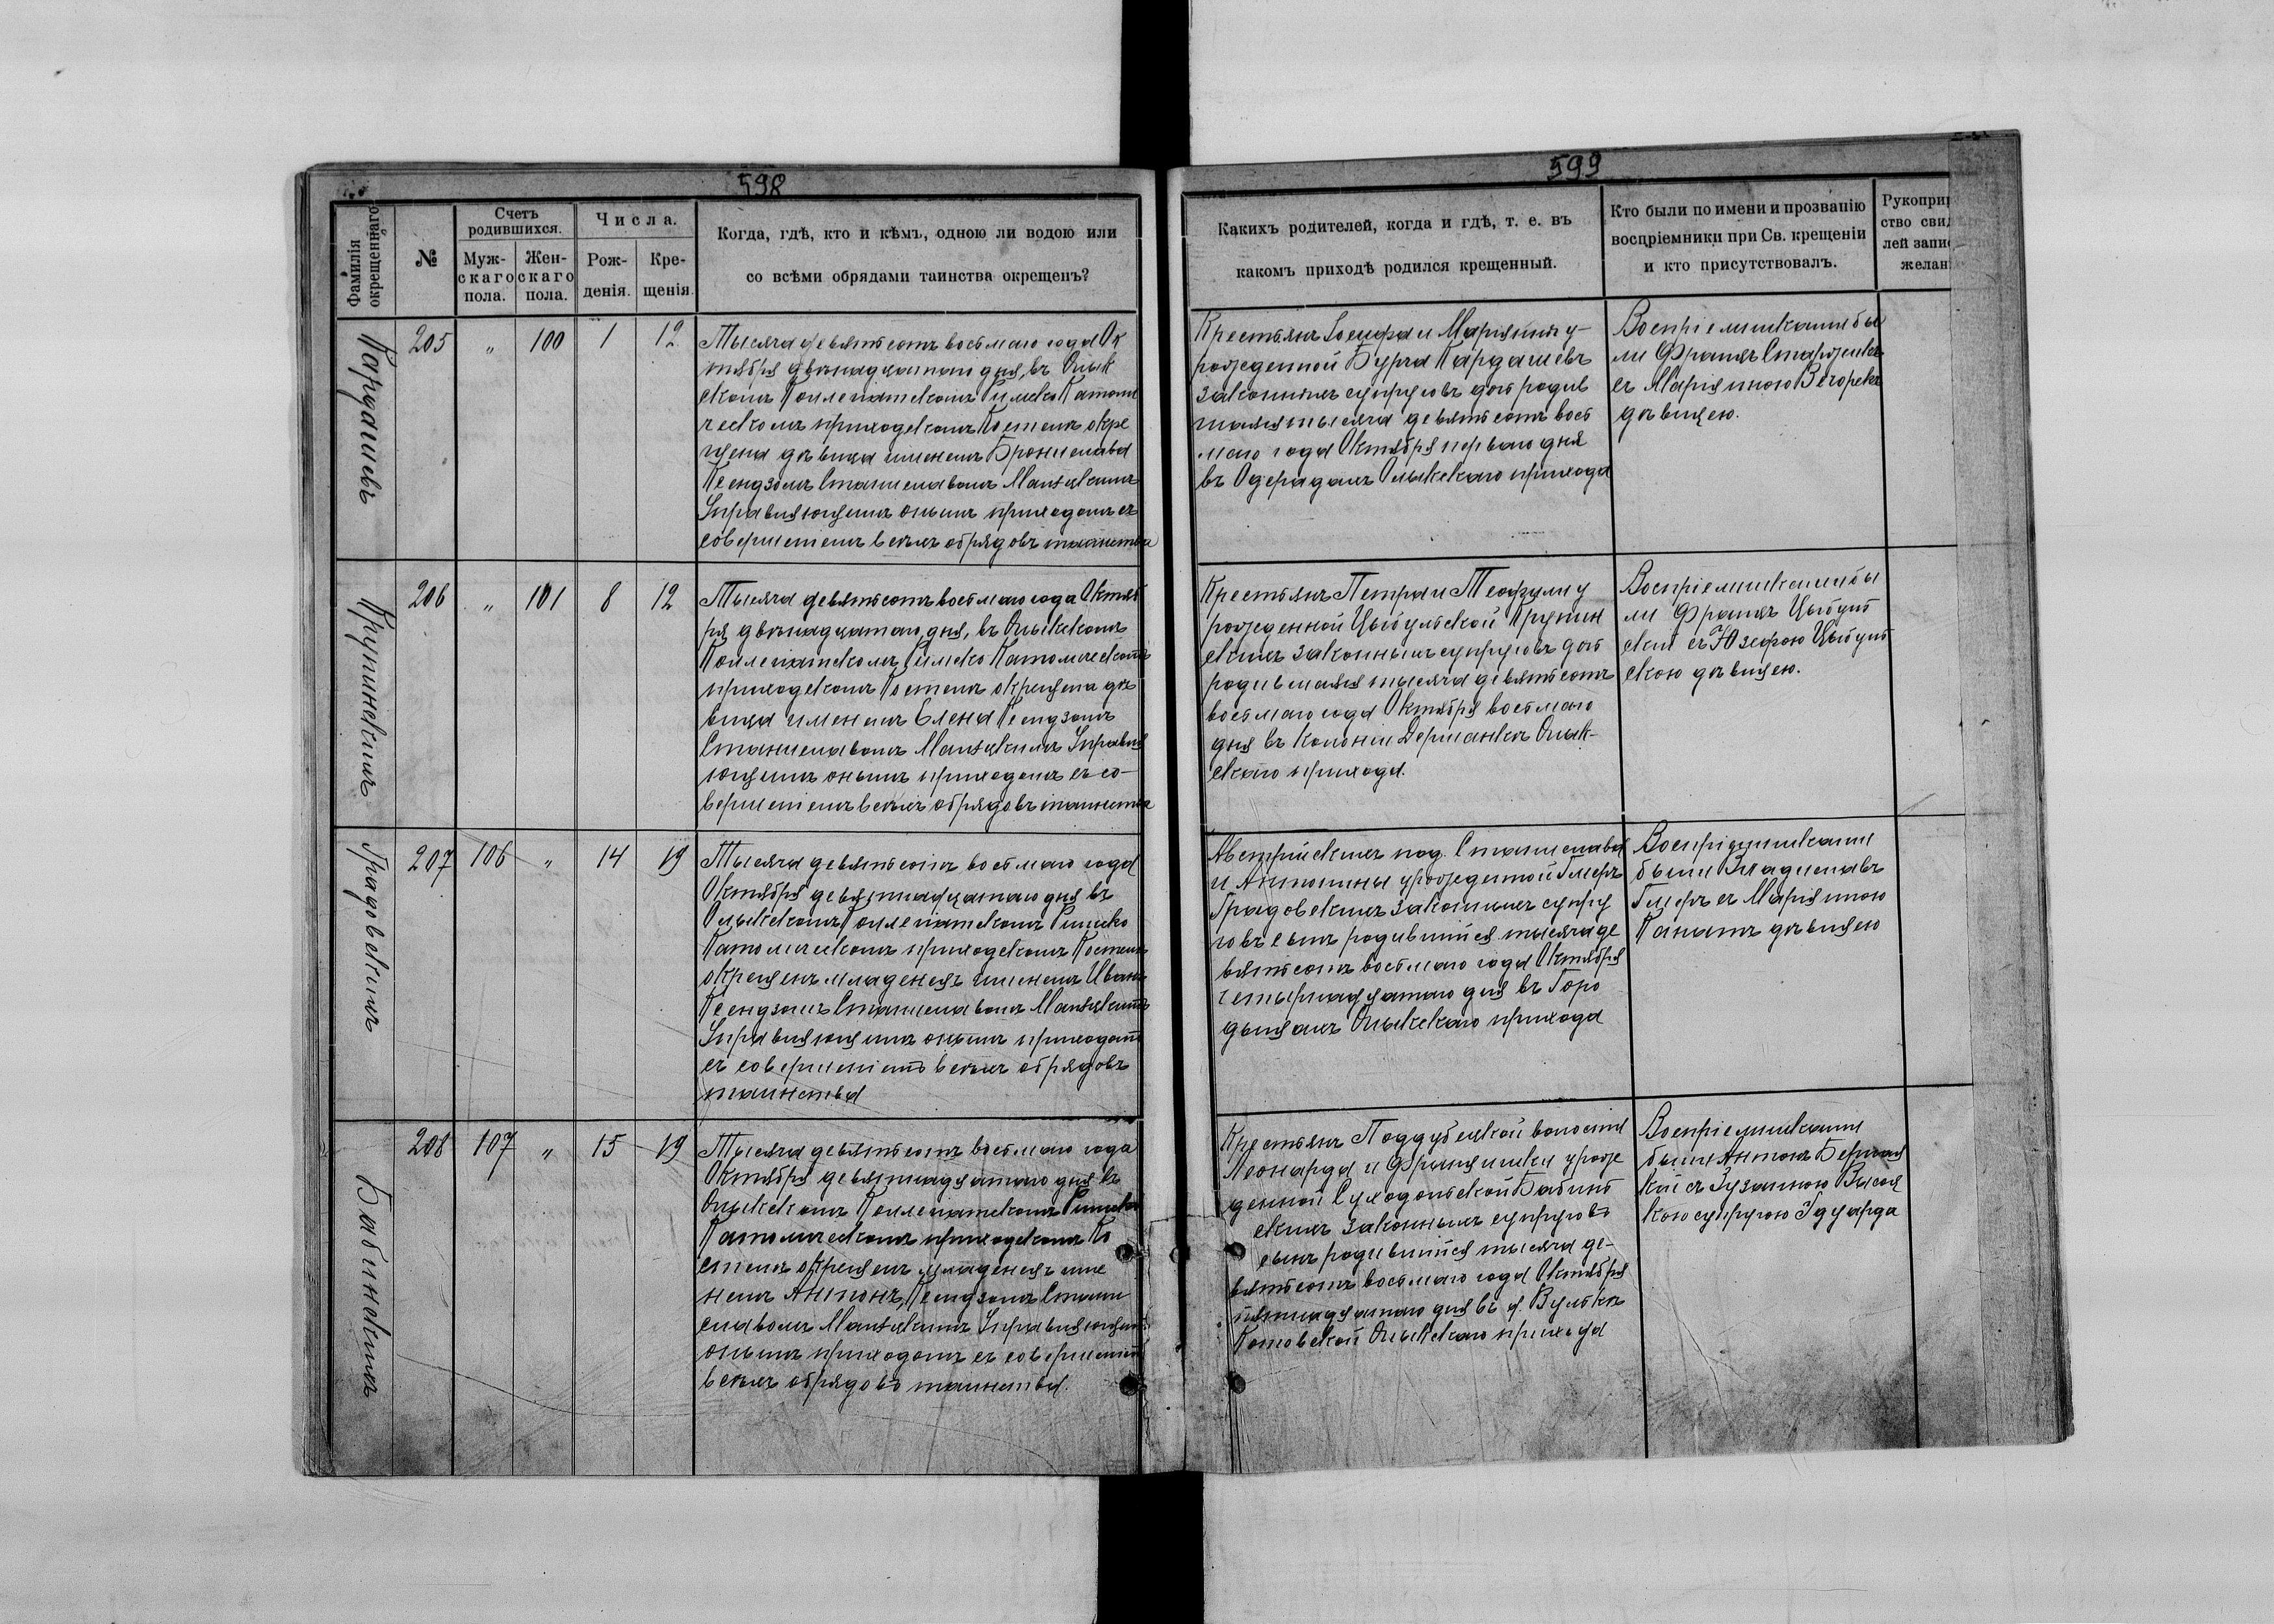 598
Фамилія окрещеннаго
№
Счетъ родившихся.
Муж-
скаго
пола.
Жен-
скаго
пола.
Числа.
Рож-
денія.
Кре-
щенія.
Когда, гдѣ, кто и кѣмъ, одною ли водою или
со всѣми обрядами таинства окрещенъ?
Кардашевъ
205 „ 100 1 12
Тысяча девятьсотъ восьмаго года Ок
тября двѣнадцатаго дня, въ Олык
скомъ Коллегіатскомъ Римско Католи
ческомъ приходскомъ Костелѣ окре
щена дѣвица именемъ Бронислава
Ксендзомъ Станиславомъ
Управляющимъ онымъ приходомъ съ
совершеніемъ всѣхъ обрядовъ таинства
Крупинскихъ
206 „ 101 8 12
Тысяча девятьсотъ восьмаго года Октяб
ря двѣнадцатаго дня, въ Олыкскомъ
Коллегіатскомъ Римско Католическомъ
приходскомъ Костелѣ окрещена дѣ
вица именемъ Елена Ксендзомъ
Станиславомъ Управля
ющимъ онымъ приходомъ съ со-
вершеніемъ всѣхъ обрядовъ таинства
Градовскихъ
207 106 „ 14 19
Тысяча девятьсотъ восьмаго года
Октября девятнадцатаго дня въ
Олыкскомъ Коллегіатскомъ Римско
Католическомъ приходскомъ Костелѣ
окрещенъ младенецъ именемъ Иванъ
Ксендзомъ Станиславомъ
Управляющимъ онымъ приходомъ
съ совершеніемъ всѣхъ обрядовъ
таинства
Бабинскихъ
208 107 „ 15 19
Тысяча девятьсотъ восьмаго года
Октября девятнадцатаго дня въ
Олыкскомъ Коллегіатскомъ Римско
Католическомъ приходскомъ Ко
стелѣ окрещенъ младенецъ име
немъ Антонъ, Ксендзомъ Стани
славомъ Управляющимъ
онымъ приходомъ съ совершеніемъ
всѣхъ обрядовъ таинства.
599
Какихъ родителей, когда и гдѣ, т. е. въ
какомъ приходѣ родился крещенный.
Кто были по имени и прозванію
воспріемники при Св. крещеніи
и кто присутствовалъ.
Рукопри
ство сви
лей запи
желан
Крестьянъ Іосифа и Маріянны у-
рожденной Бурга Кардашевъ
законныхъ супруговъ дочь родив
шаяся тысяча девятьсотъ вось
маго года Октября перваго дня
въ Одерадахъ Олыкскаго прихода
Воспріемниками бы
ли Францъ
съ Маріянною Вечорекъ
дѣвицею.
Крестьянъ Петра и Теофили у
рожденной Цыбульской Крупин
скихъ законныхъ супруговъ дочь
родившаяся тысяча девятьсотъ
восьмаго года Октября восьмаго
дня въ колоніи Дерманкѣ Олык-
скаго прихода.
Воспріемниками бы
ли Францъ Цыбуль
скій съ Юзефою Цыбуль
скою дѣвицею.
Австрійскихъ под. Станислава
и Антонины урожденной Гмеръ
Градовскихъ законныхъ супру
говъ сынъ родившійся тысяча де
вятьсотъ восьмаго года Октября
четырнадцатаго дня въ Горо
дыщахъ Олыкскаго прихода
Воспріемниками
были Владиславъ
Гмеръ съ Маріянною
Канатъ дѣвицею
Крестьянъ Поддубецкой волости
Леонарда и Францишки урож
денной Суходольской Бабинь
скихъ законныхъ супруговъ
сынъ родившійся тысяча де-
вятьсотъ восьмаго года Октября
пятнадцатаго дня въ д. Вулькѣ
Котовской Олыкскаго прихода
Воспріемниками
были Антонъ
съ Зузанною
супругою Эдуарда